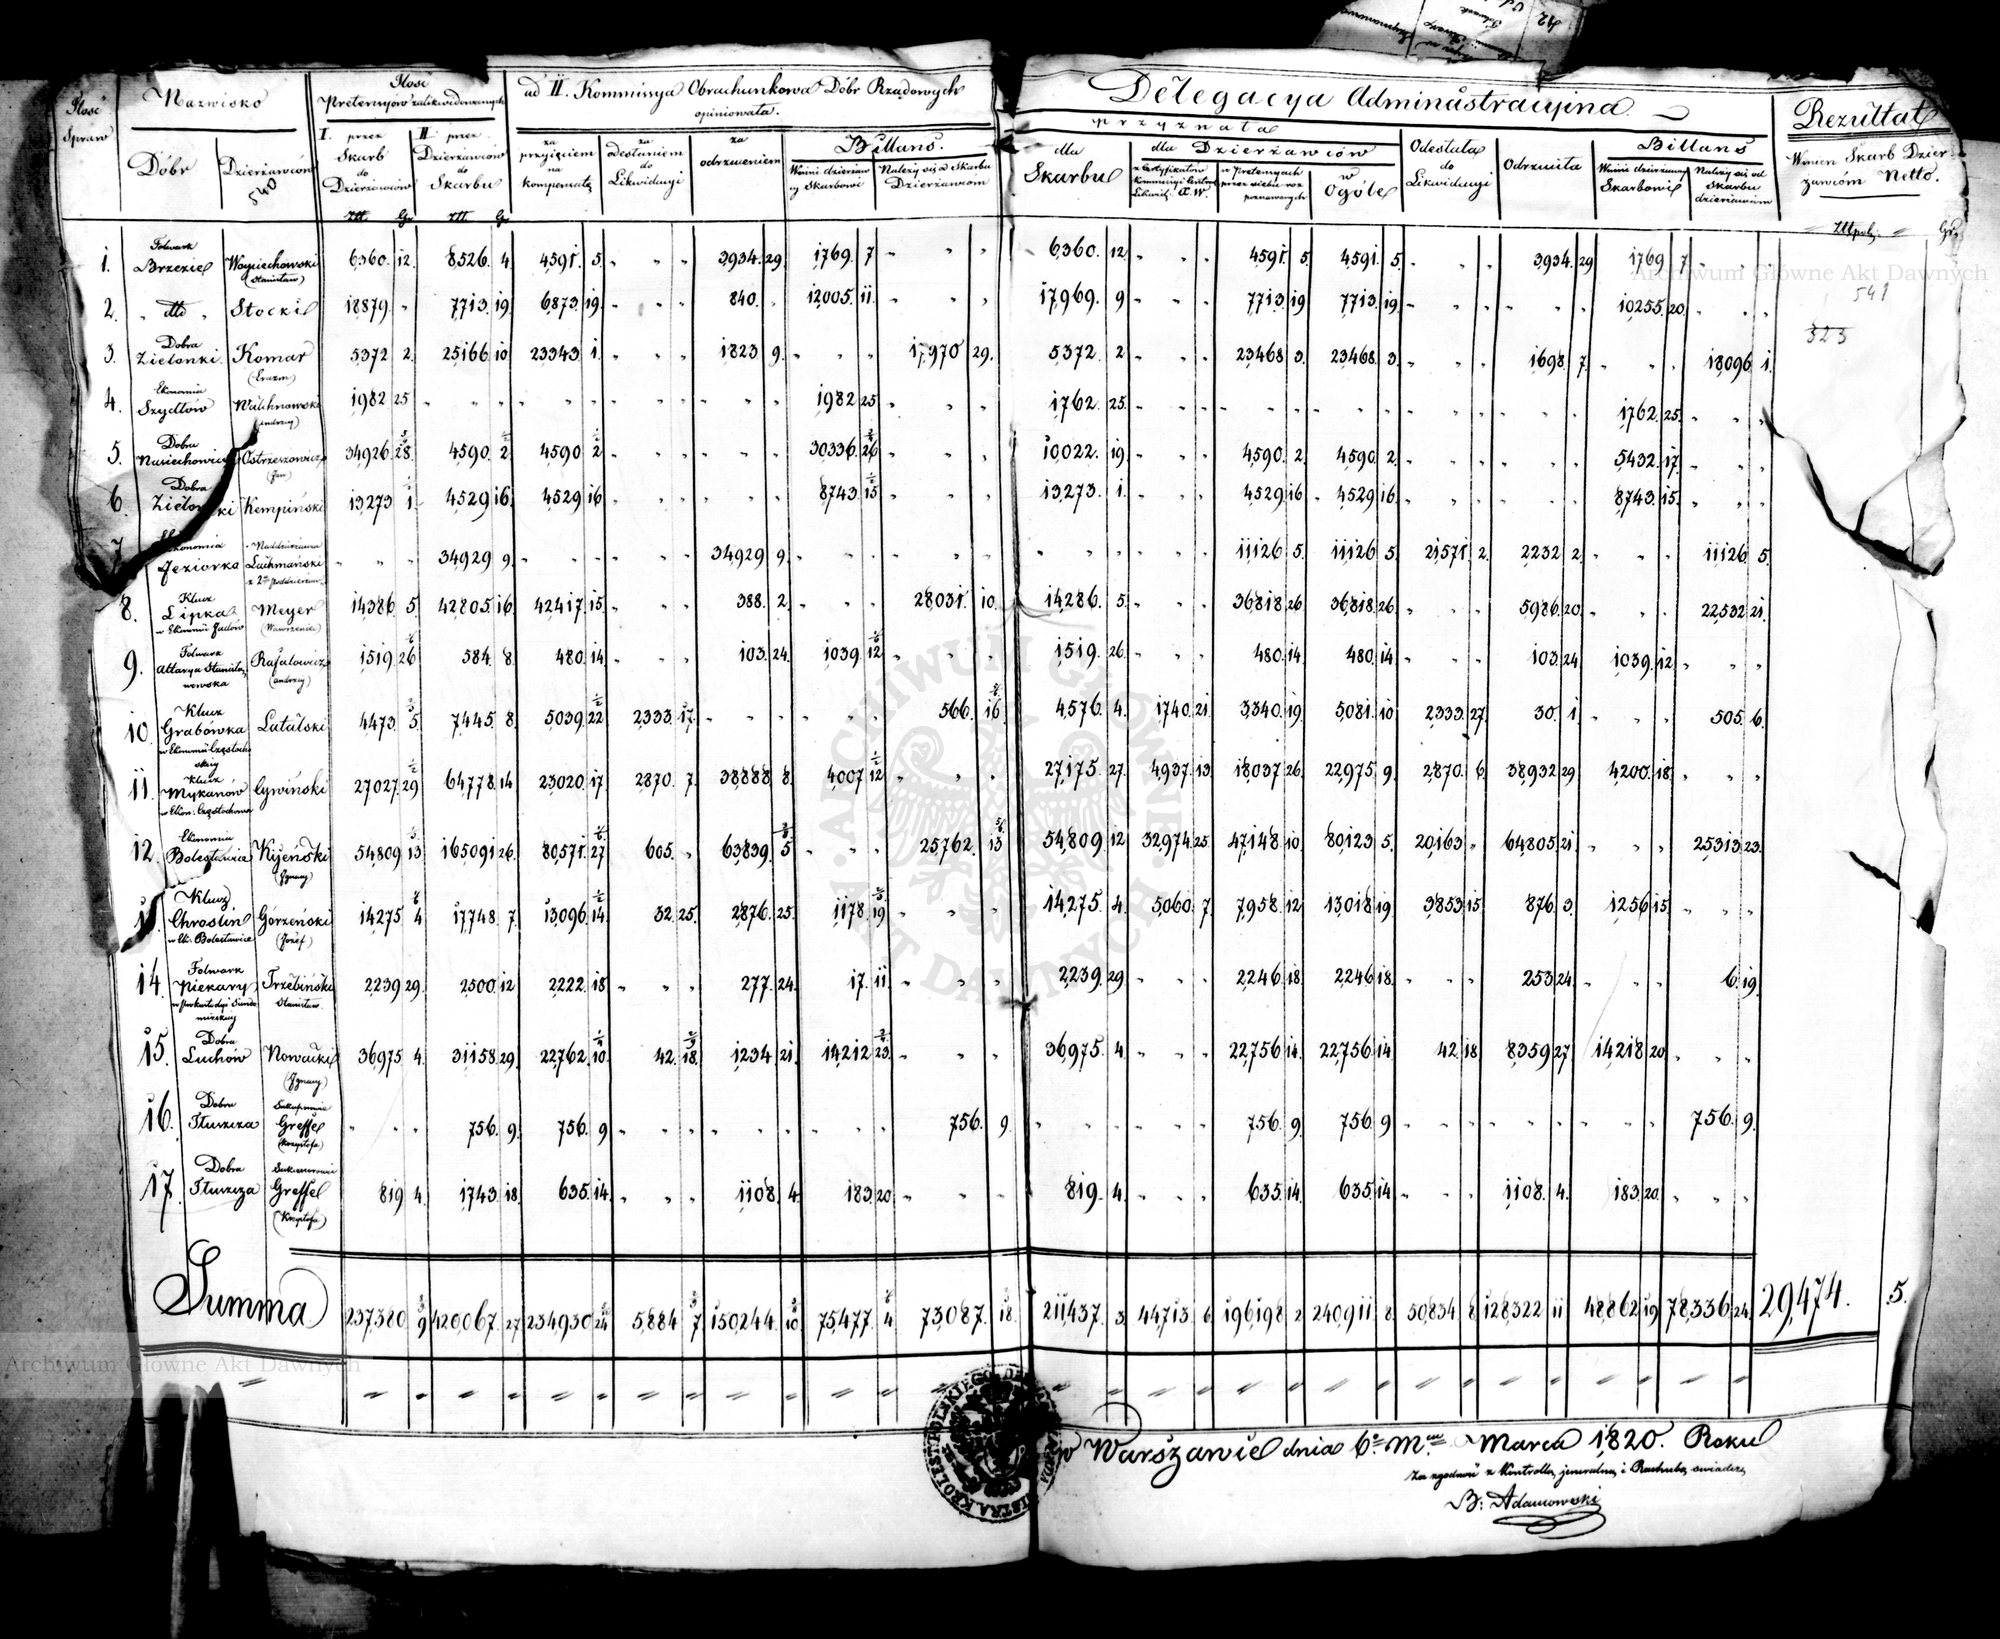 Ilość Spraw
Nazwisko
Dóbr
Dzierżawców
540
Ilość Pretensyów zalikwidowanych
I. przez Skarb do Dzierżawców
II. przez Dzierżawców do Skarbu
Złł. Gr. Złł. Gr.
ad II. Kommissya Obrachunkowa Dóbr Rządowych
opiniowała.
za przyięciem na kompensatę
za odesłaniem do Likwidacyi
za odrzuceniem
Billans.
Winni dzierżawcy Skarbowi
Należy się od Skarbu Dzierżawcom
Delegacya Administracyina
przyznała
dla Skarbu
dla Dzierżawców
z Certyfikatów Kommissyi Centr. Likwid. X. W.
w Pretensyach przez siebie rozpoznawanych
w Ogóle
Odesłała do Likwidacyi
Odrzuciła
Billans
Winni dzierżawcy Skarbowi
Należy się od Skarbu dzierżawcom
Rezultat
Winien Skarb Dzierżawcom Netto.
Złłpol. Gr.
541
323
1. Folwark Brzezie Woyciechowski (Stanisław) 6360. 12. 8526. 4. 4591. 5. " " " 3934. 29. 1769. 7 " " " 6360. 12 " " " 4591. 5. 4591. 5. " " " 3934. 29 1769 7 " " "
2. " dtto " Stocki 18879. " 7713. 19. 6873. 19. " " " 840. " 12005. 11. " " " 17,969. 9 " " " 7713. 19 7713. 19. " " " " " " 10255. 20. " " "
3. Dobra Zielonki. Komar (Erazm) 5372 2. 25166 10 23343 1. " " " 1823 9. " " " 17970 29. 5372 2 " " " 23468 3. 23468. 3. " " " 1698. 7. " " " 18096 1.
4. Ekonomia Szydłów Walichnowski (Andrzey) 1982 25 " " " " " " " " " " " " 1982 25 " " " 1762. 25. " " " " " " " " " " " " " " " 1762. 25. " " "
5. Dobra Ostrzeszowicz (Jan) 34926. 28. 4590. 2 4590 2 " " " " " " 30336. 26 " " " 10022. 19. " " " 4590. 2. 4590 2. " " " " " " 5432. 17. " " "
6. Dobra Kempiński 13273 1. 4529 16. 4529 16 " " " " " " 8743. 15 " " " 13,273. 1. " " " 4529 16 " 4529 16. " " " " " " 8743. 15. " " "
7. Ekonomia Jeziorka Naddzierżawca Luchmański " " " 34929 9. " " " " " " 34929 9. " " " " " " " " " " " " 11126 5. 11126 5 21571 2. 2232 2. " " " 11126 5.
8. Klucz Lipka w Ekonomii Jadów Meyer (Wawrzeniec) 14386. 5. 42805 16. 42417. 15. " " " 388. 2. " " " 28031. 10. 14286. 5. " " " 36818 26 36818. 26. " " " 5986. 20. " " " 22,532 21.
9. Folwark Rafałowicz (Andrzey) 1519. 26 584. 8. 480. 14 " " " 103. 24. 1039. 12 " " " 1519. 26. " " " 480. 14. 480. 14. " " " 103. 24 1039. 12. " " "
10. Klucz Grabówka w Ekonomii Częstochoskiey Latalski 4473. 5. 7445. 8 5039. 22 2333. 17. " " " " " " 566. 16 4576. 4. 1740. 21. 3340. 19. 5081. 10 2333. 27. 30. 1. " " " 505. 6.
11. Klucz Mykanów w Ekon: Częstochow: Cywiński 27027. 29 64778. 14 23020. 17. 2870. 7. 38888. 8. 4007 12 " " " 27175. 27. 4937. 13 18037. 26. 22975. 9. 2870. 6. 38932 29 4200. 18. " " "
12. Ekonomia Bolesławice Kijeński (Ignacy) 54809 13 165091 26. 80571. 27 605. " 63839. 5 " " " 25762. 13 54,809 12 32974. 25. 47148 10 80123 5. 20163 " 64805. 21. " " " 25313 23.
Klucz Chroślin w Ek: Bolesławice Górzeński (Józef) 14275 4 17748. 7. 13096. 14 32. 25. 2876. 25. 1178. 19 " " " 14,275. 4. 5,060. 7 7958. 12 13018 19. 3853 15 876. 3. 1256 15. " " "
14. Folwark Piekary Trzebiński Stanisław 2239 29. 2500. 12 2222. 18 " " " 277. 24. 17. 11. " " " 2239. 29 " " " 2246 18. 2246 18. " " " 253 24. " " " 6. 19.
15. Dobra Luchów Nowacki (Ignacy) 36975. 4. 31158. 29. 22762. 10 42. 18. 1234. 21. 14212. 23. " " " 36975. 4 " " " 22756. 14. 22756. 14 42 18 8359 27 14218 20. " " "
16. Dobra Tłuszcza Sukcessorowie Greffel (Krzysztofa) " " " 756. 9. 756. 9 " " " " " " " " " 756. 9. " " " " " " 756. 9. 756. 9 " " " " " " " " " 756. 9.
17. Dobra Tłuszcza Sukcessorowie Greffel (Krzysztofa) 819 4. 1743. 18. 635. 14. " " " 1108. 4. 183. 20 " " " 819. 4. " " " 635. 14. 635. 14. " " " 1108. 4. 183. 20. " " "
Summa 237380 9 420067. 27 234930 24 5,884 7 150244. 10 75477. 4 73087. 18. 211437. 3 44,713. 6. 196198 2 240911 8. 50834 8 128322 11 48862 19 78,336 24. 29,474. 5.
w Warszawie dnia 6o Mca Marca 1820. Roku
Za zgodność z Kontrollą jeneralną i Rachubą świadczę
B: Adamowski
Archiwum Główne Akt Dawnych
Archiwum Główne Akt Dawnych
ARCHIWUM GŁÓWNE AKT DAWNYCH